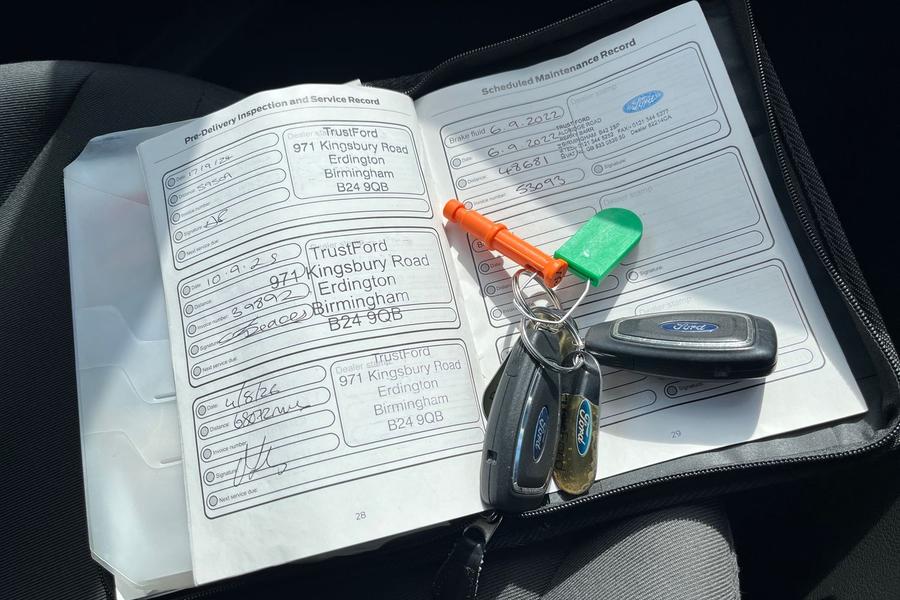 Pre-Delivery Inspection and Service Record
Date: 17/9/24
Distance:
Invoice number:
Signature:
Next service due:
Dealer stamp
TrustFord
971 Kingsbury Road
Erdington
Birmingham
B24 9QB
Date: 10.9.25
Distance:
Invoice number: 39892
Signature:
Next service due:
TrustFord
971 Kingsbury Road
Erdington
Birmingham
B24 9QB
Date: 4/8/26
Distance:
Invoice number:
Signature:
Next service due:
Dealer stamp
TrustFord
971 Kingsbury Road
Erdington
Birmingham
B24 9QB
28
Scheduled Maintenance Record
Brake fluid 6.9.2022
Date: 6.9.2022
Distance: 48681
Invoice number: 53093
Signature:
Dealer stamp
Ford
TRUSTFORD
ALDRIDGE ROAD
PERRY BARR
BIRMINGHAM B42 2SP
Dealer stamp
Signature:
Dealer stamp
Signature:
29
Ford
Ford
Ford